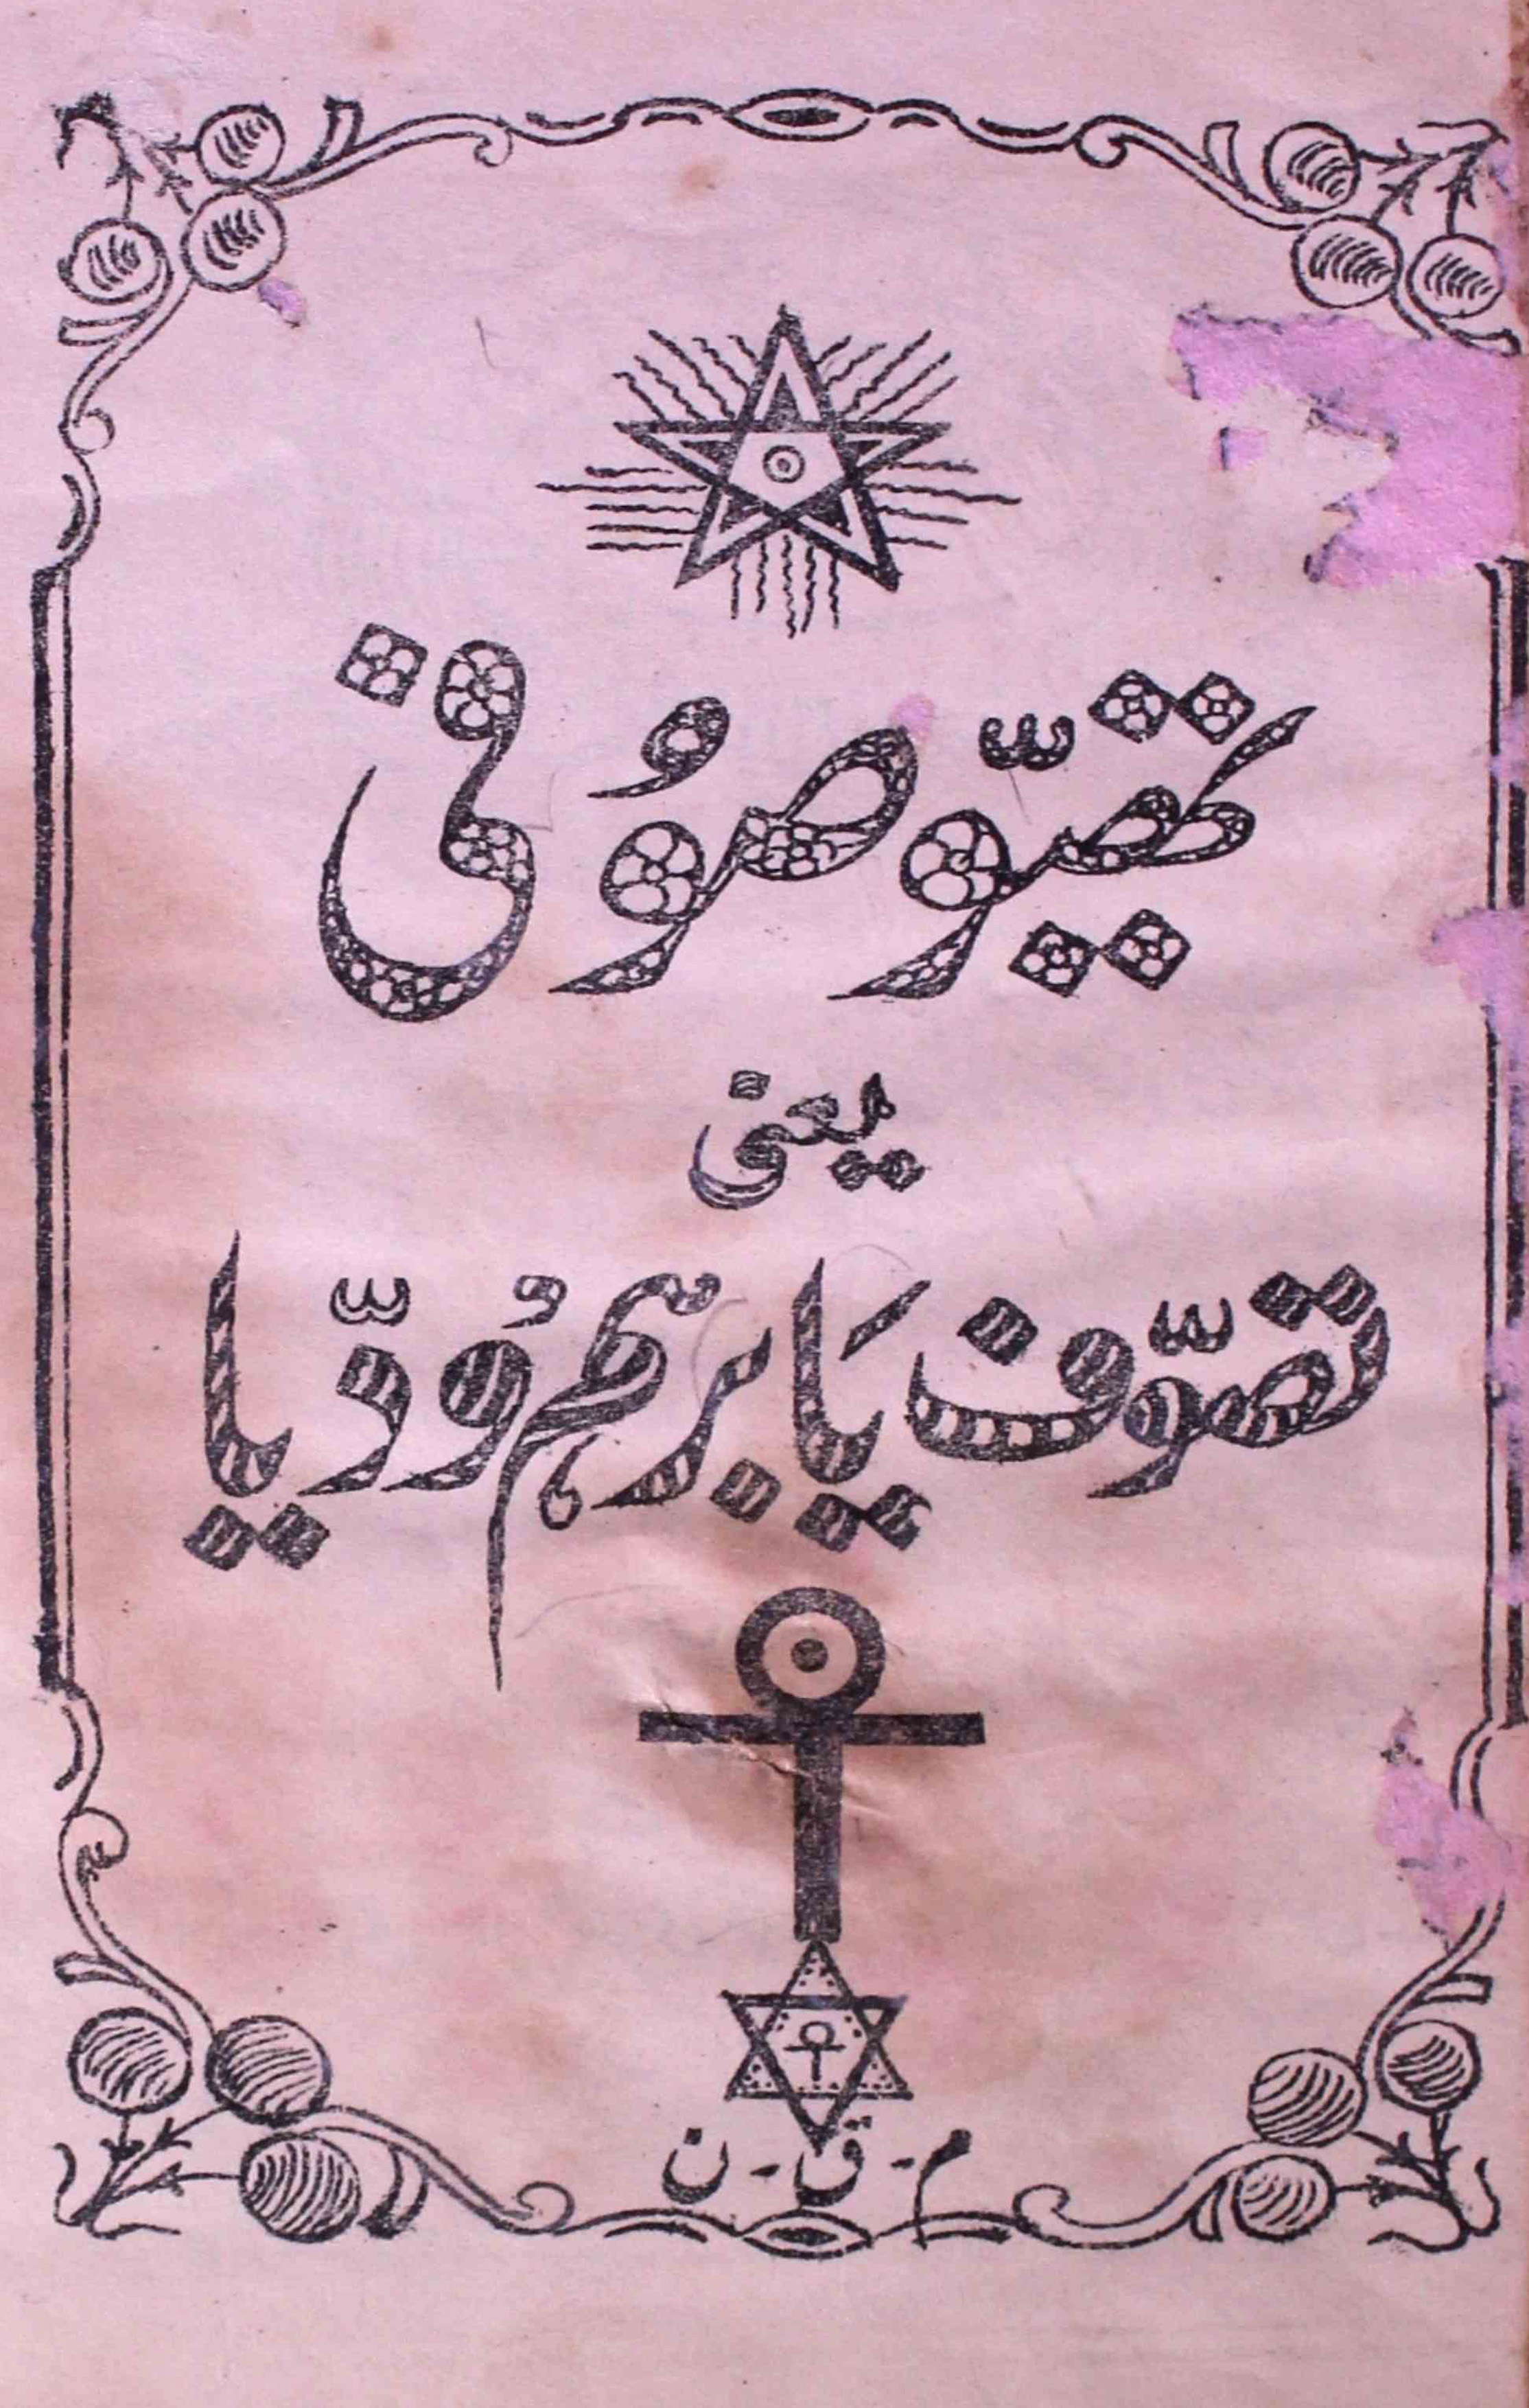 تھیوّصُوفی
یعنی
تصوّف یَا برہم وُدّیا
م - ق - ن